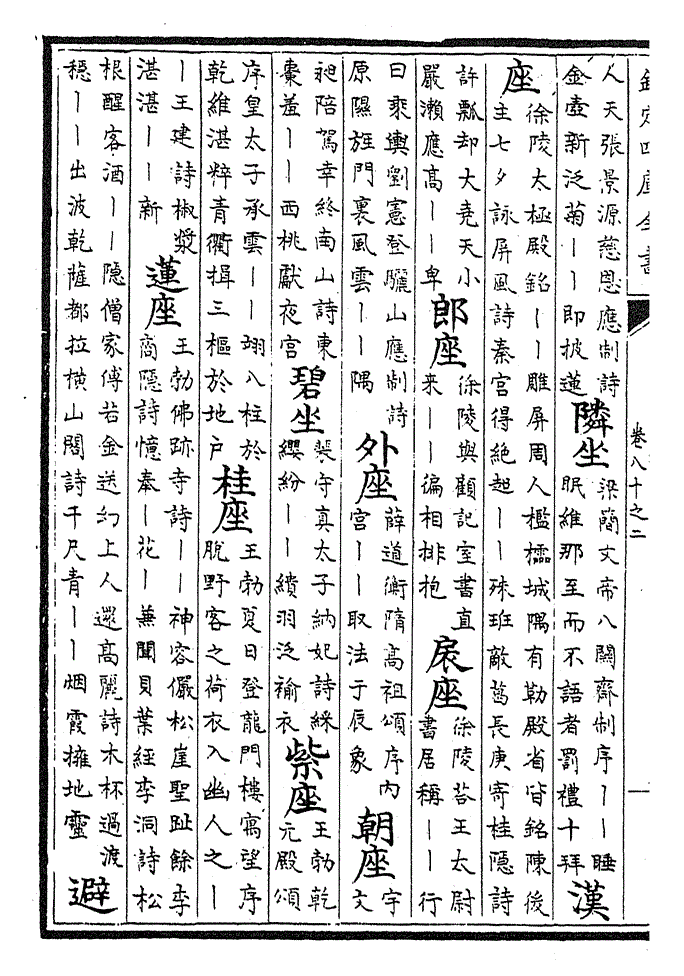 欽定四庫全書 卷八十之二 一
人天張景源慈恩應制詩
金壺新泛菊丨丨即披蓮
隣坐
梁簡文帝八關齋制序丨丨睡
眠維那至而不語者罰禮十拜
漢
座
徐陵太極殿銘丨丨雕屏周人檻櫺城隅有勒殿省皆銘陳後
主七夕詠屏風詩秦宮得絶超丨丨殊班敵葛長庚寄桂隱詩
許瓢却大堯天小
嚴瀨應高丨丨卑
郎座
徐陵與顧記室書直
來丨丨徧相排抱
扆座
徐陵荅王太尉
書居稱丨丨行
曰乘輿劉憲登驪山應制詩
原隰旌門裏風雲丨丨隅
外座
薛道衡隋高祖頌序内
宮丨丨取法于辰象
朝座
宇
文
昶陪駕幸終南山詩東
棗羞丨丨西桃獻夜宮
碧坐
裴守真太子納妃詩綵
纓紛丨丨繢羽泛褕衣
紫座
王勃乾
元殿頌
序皇太子承雲丨丨翊八柱於
乾維湛粹青衢揖三樞於地户
桂座
王勃夏日登龍門樓寓望序
脫野客之荷衣入幽人之丨
丨王建詩椒漿
湛湛丨丨新
蓮座
王勃佛跡寺詩丨丨神容儼松崖聖趾餘李
商隱詩憶奉丨花丨兼聞貝葉經李洞詩松
根醒客酒丨丨隱僧家傅若金送幻上人還高麗詩木杯過渡
穩丨丨出波乾薩都拉横山閣詩千尺青丨丨烟霞擁地靈
避